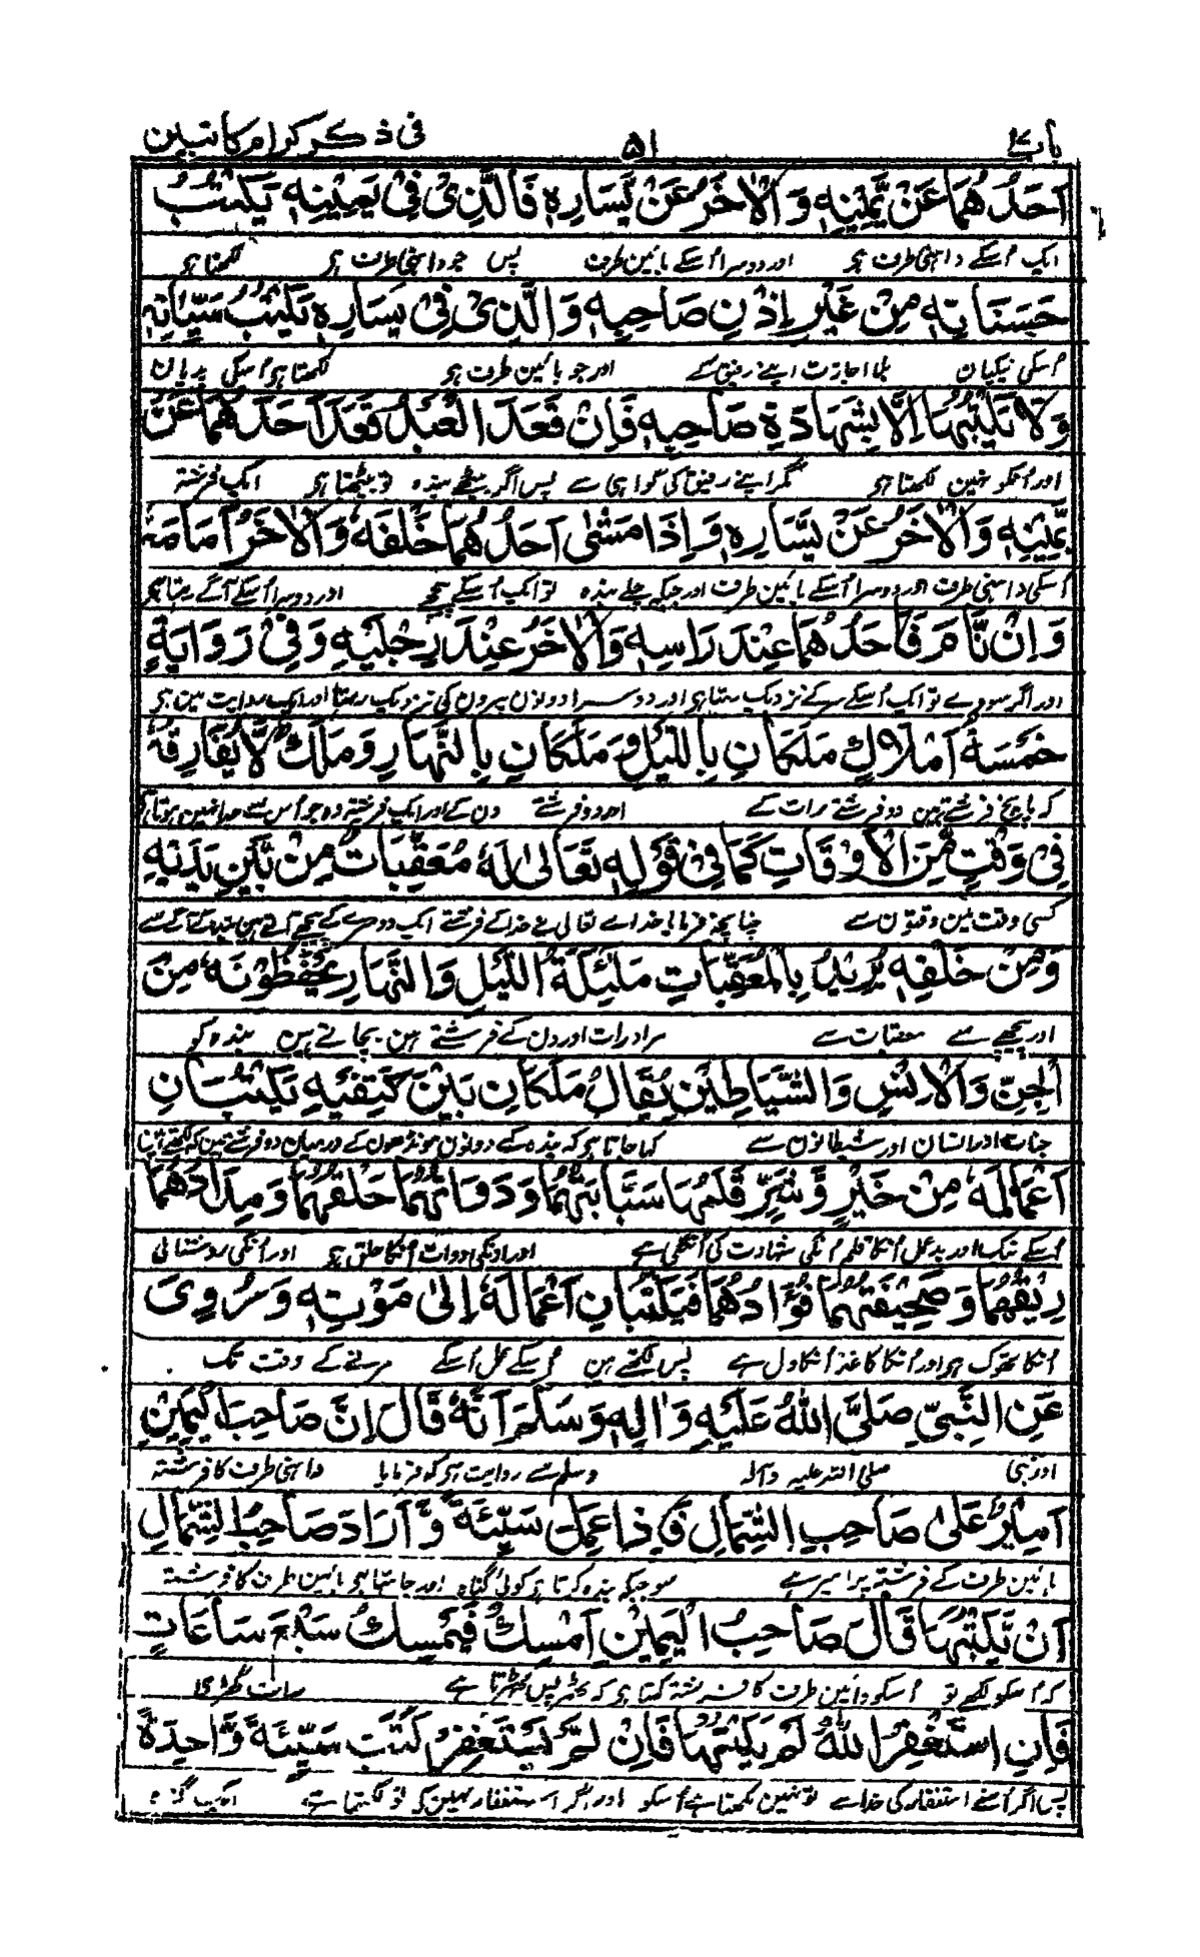 باب ۵۱ فی ذکر کرام کاتبین
اَحَدُهُمَا عَنْ يَّمِيْنِهٖ وَالْاٰخَرُ عَنْ يَّسَارِهٖ فَالَّذِیْ فِیْ يَمِيْنِهٖ يَكْتُبُ
ایک اُسکے داہنی طرف ہو اور دوسرا اُسکے بائین طرف پس جو داہنی طرف ہو لکھتا ہو
حَسَنَاتِهٖ مِنْ غَيْرِ اِذْنِ صَاحِبِهٖ وَالَّذِیْ فِیْ يَسَارِهٖ يَكْتُبُ سَيِّاٰتِهٖ
اُسکی نیکیان بلا اجازت اپنے رفیق کے اور جو بائین طرف ہو لکھتا ہو اُسکی بدیان
وَلَا يَكْتُبُهَا اِلَّا بِشَهَادَةِ صَاحِبِهٖ فَاِنْ قَعَدَ الْعَبْدُ قَعَدَ اَحَدُهُمَا عَنْ
اور اُنکو نہین لکھتا ہو مگر اپنے رفیق کی گواہی سے پس اگر بیٹھے بندہ تو بیٹھتا ہو ایک فرشتہ
يَّمِيْنِهٖ وَالْاٰخَرُ عَنْ يَّسَارِهٖ وَاِذَا مَشٰى اَحَدُهُمَا خَلْفَهٗ وَالْاٰخَرُ اَمَامَهٗ
اُسکی داہنی طرف اور دوسرا اُسکے بائین طرف اور جبکہ چلے بندہ تو ایک اُسکے پیچھے اور دوسرا اُسکے آگے رہتا ہو
وَاِنْ نَّامَ فَاَحَدُهُمَا عِنْدَ رَاسِهٖ وَالْاٰخَرُ عِنْدَ رِجْلَيْهِ وَفِیْ رَوَايَةٍ
اور اگر سووے تو ایک اُسکے سر کے نزدیک رہتا ہو اور دوسرا دونون پیرون کی نزدیک رہتا اور ایک روایت مین ہو
خَمْسَةُ اَمْلَاكٍ مَلَكَانِ بِاللَّيْلِ وَمَلَكَانِ بِالنَّهَارِ وَمَلَكٌ لَّا يُفَارِقُهٗ
کہ پانچ فرشتے ہین دو فرشتے رات کے اور دو فرشتے دن کے اور ایک فرشتہ وہ جو اُس سے جدا نہین ہوتا ہو
فِیْ وَقْتٍ مِّنَ الْاَوْقَاتِ كَمَا فِیْ قَوْلِهٖ تَعَالٰى لَهٗ مُعَقِّبَاتٌ مِنْ بَّيْنِ يَدَيْهِ
کسی وقت مین وقتون سے چنانچہ فرمایا خداے تعالی نے خدا کے فرشتے ایک دوسرے کے پیچھے آتے ہین بندہ کے آگے سے
وَمِنْ خَلْفِهٖ يُرِيْدُ بِالْمُعَقِّبَاتِ مَلٰئِكَةَ اللَّيْلِ وَالنَّهَارِ يَحْفَظُوْنَهٗ مِنَ
اور پیچھے سے معقبات سے مراد رات اور دن کے فرشتے ہین بچاتے ہین بندہ کو
الْجِنِّ وَالْاِنْسِ وَالشَّيَاطِيْنِ يُقَالُ مَلَكَانِ بَيْنَ كَتِفَيْهِ يَكْتُبَانِ
جنات اور انسان اور شیطانون سے کہا جاتا ہو کہ بندہ کے دونون مونڈھون کے درمیان دو فرشتے ہین کہ لکھتے ہین
اَعْمَالَهٗ مِنْ خَيْرٍ وَّشَرٍّ قَلَمُهَا سَبَّابَتُهُمَا وَدَوَاتُهُمَا حَلْقُهُمَا وَمِدَادُهُمَا
اُسکے نیک اور بد عمل اُنکا قلم اُنکی شہادت کی اُنگلی ہے اور اونکی دوات اُنکا حلق ہو اور اُنکی روشنائی
رِيْقُهُمَا وَصَحِيْفَتُهُمَا فُؤَادُهُمَا فَيَكْتُبَانِ اَعْمَالَهٗ اِلٰى مَوْتِهٖ وَرُوِیَ
اُنکا تھوک ہو اور اُنکا کاغذ اُنکا دل ہے پس لکھتے ہین اُسکے عمل اُسکے مرنے کے وقت تک
عَنِ النَّبِیِّ صَلَّى اللّٰهُ عَلَيْهِ وَاٰلِهٖ وَسَلَّمَ اَنَّهٗ قَالَ اِنَّ صَاحِبَ الْيَمِيْنِ
اور نبی صلی اللہ علیہ وآلہ وسلم سے روایت ہو کہ فرمایا داہنی طرف کا فرشتہ
اَمِيْرٌ عَلٰى صَاحِبِ الشِّمَالِ فَاِذَا عَمِلَ سَيِّئَةً وَّاَرَادَ صَاحِبُ الشِّمَالِ
بائین طرف کے فرشتہ پر امیر ہے سو جبکہ بندہ کرتا ہو کوئی گناہ اور چاہتا ہو بائین طرف کا فرشتہ
اَنْ يَّكْتُبَهَا قَالَ صَاحِبُ الْيَمِيْنِ اَمْسِكْ فَيُمْسِكُ سَبْعَ سَاعَاتٍ
کہ اُسکو لکھے تو اُسکو داہین طرف کا فرشتہ کہتا ہو کہ ٹھہر پس ٹھہرتا ہے سات گھڑی
فَاِنِ اسْتَغْفَرَ اللّٰهَ لَمْ يَكْتُبْهَا فَاِنْ لَّمْ يَسْتَغْفِرْ كَتَبَ سَيِّئَةً وَّاحِدَةً
پس اگر اُسنے استغفار کی خدا سے تو نہین لکھتا ہے اُسکو اور اگر استغفار نہین کی تو لکھتا ہے ایک گناہ